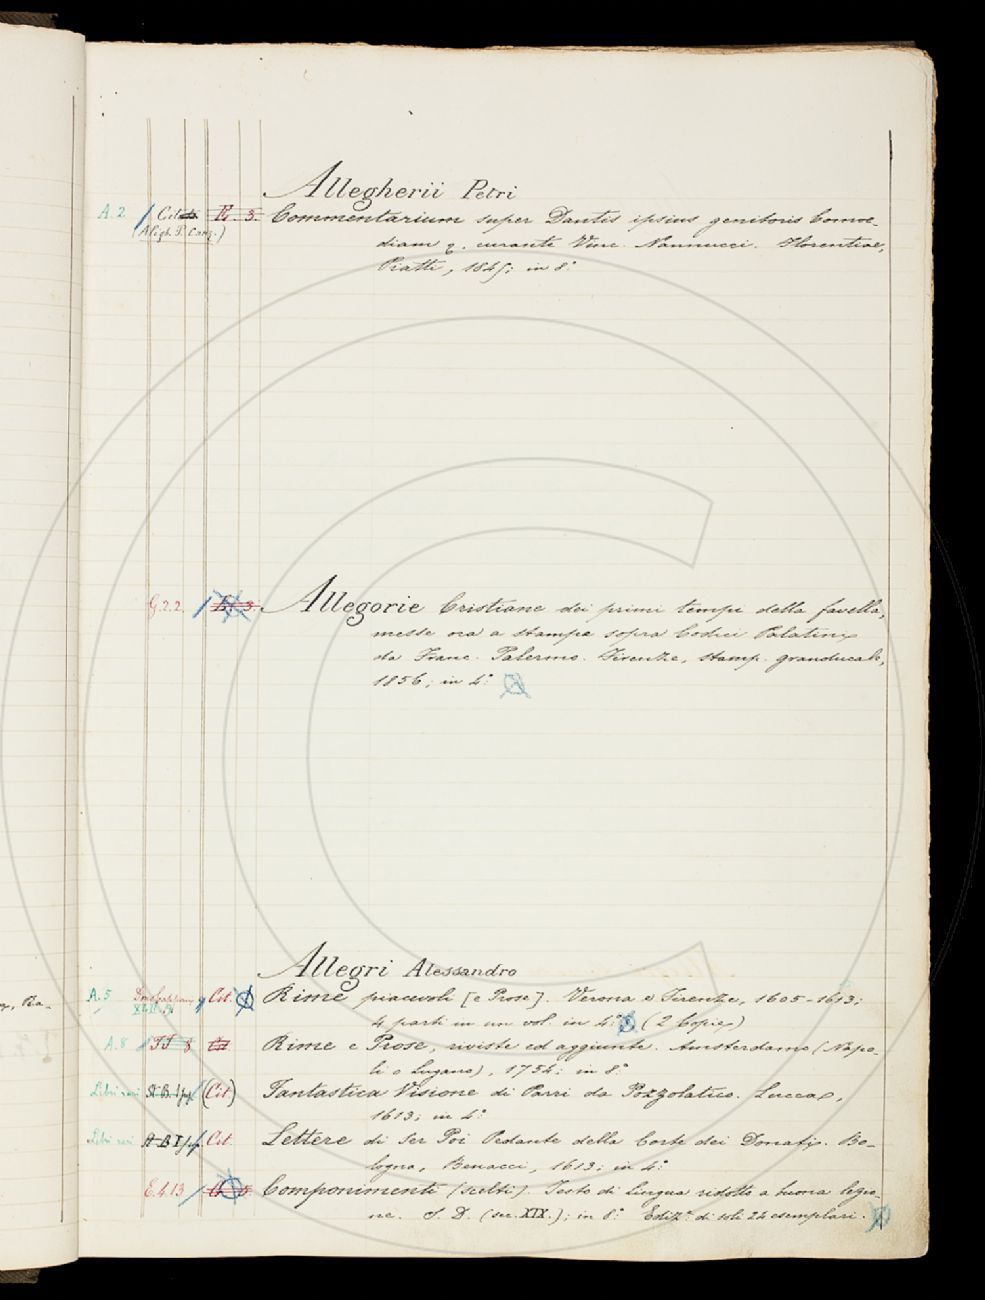 Allegherii Petri
A.2 Cit. E. 3. Commentarium super Dantis ipsius genitoris Comoe-
(Aligh. P. Cang.) diam &. curante Vinc. Nannucci. Florentiae,
Piatti, 1845; in 8.°
G.2.2. E. 3. Allegorie Cristiane dei primi tempi della favella,
messe ora a stampa sopra Codici Palatini
da Franc. Palermo. Firenze, stamp. granducale,
1856; in 4.°
Allegri Alessandro
A.5 Cit. Rime piacevoli [e Prose]. Verona e Firenze, 1605-1613;
4 parti in un vol. in 4.° (2 Copie)
A.8 TT 8 Cit. Rime e Prose, riviste ed aggiunte. Amsterdamo (Napo-
li o Lugano), 1754; in 8.°
Libri rari (Cit.) Fantastica Visione di Parri da Pozzolatico. Lucca,
1613; in 4.°
Libri rari Cit. Lettere di Ser Poi Pedante della Corte dei Donati. Bo-
logna, Benacci, 1613; in 4.°
E.4.13 Componimenti (scelti). Testo di lingua ridotto a buona lezio-
ne. S. D. (sec. XIX.); in 8.° Ediz.° di soli 24 esemplari.